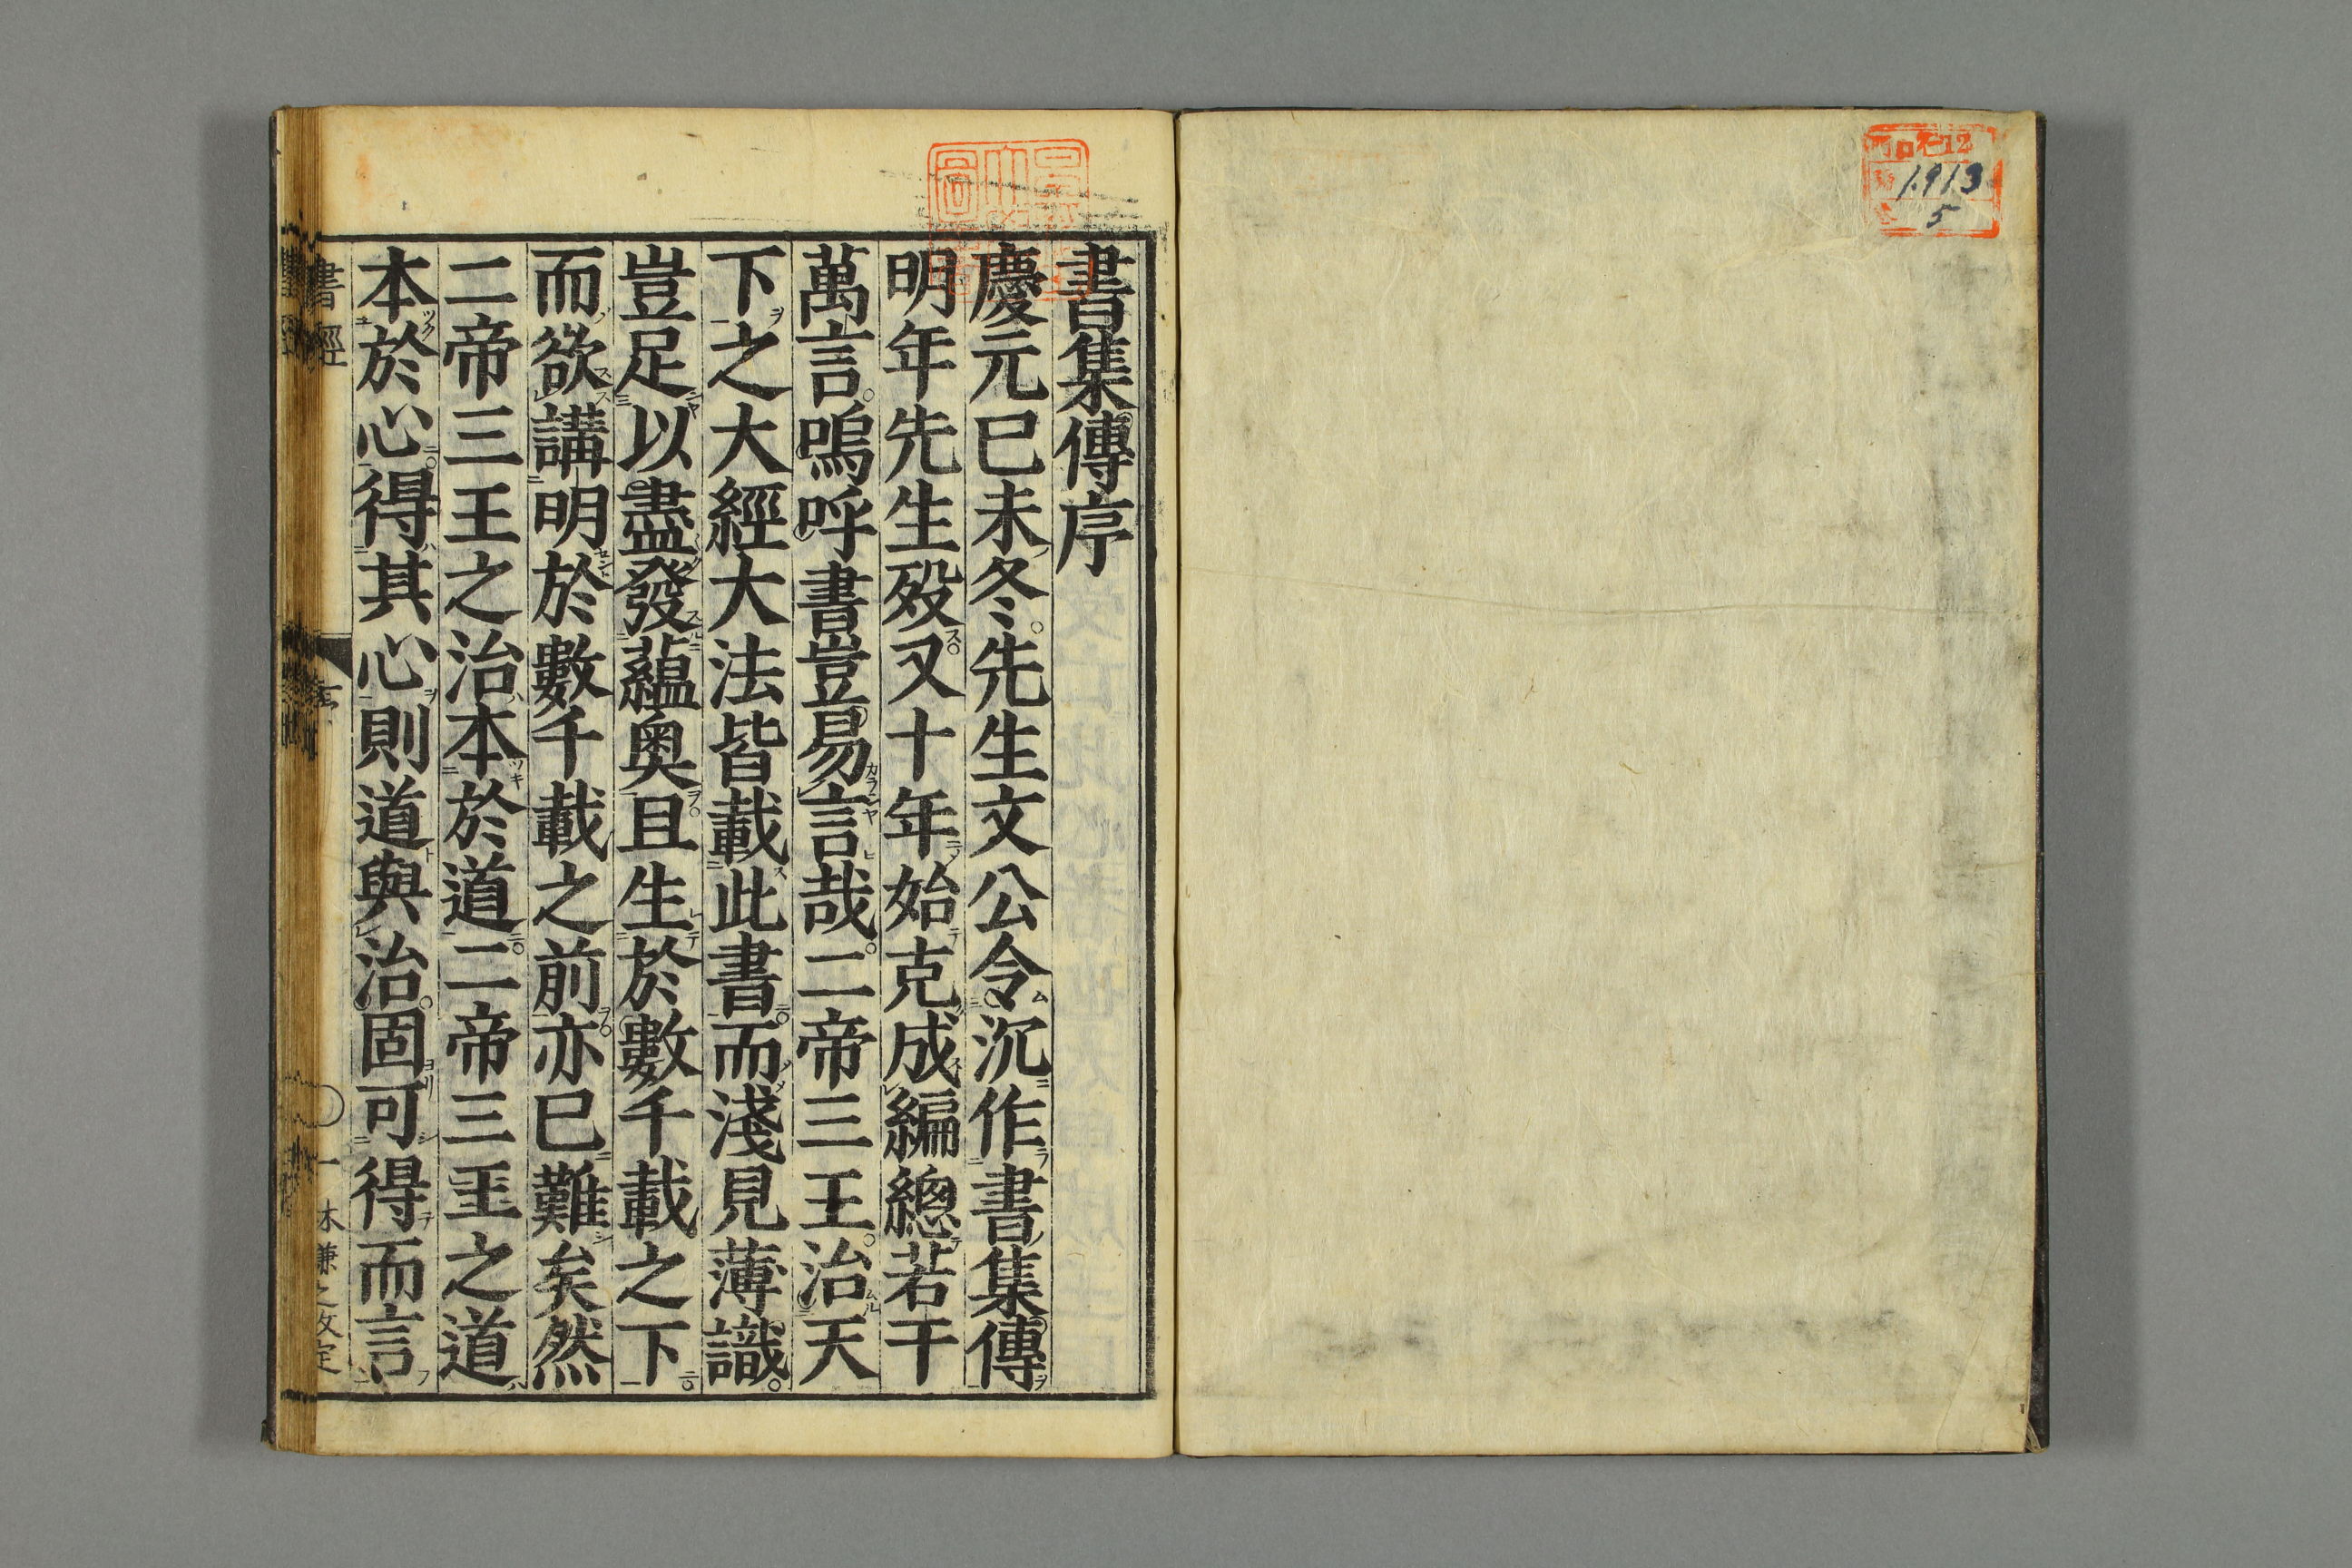 1913
5
書集傳序
慶元已未冬先生文公令沉作書集傳
明年先生歿又十年始克成編總若干
萬言嗚呼書豈易言哉二帝三王治天
下之大經大法皆載此書而淺見薄識
豈足以盡發蘊奥且生於數千載之下
而欲講明於數千載之前亦已難矣然
二帝三王之治本於道二帝三王之道
本於心得其心則道與治固可得而言
書經
一